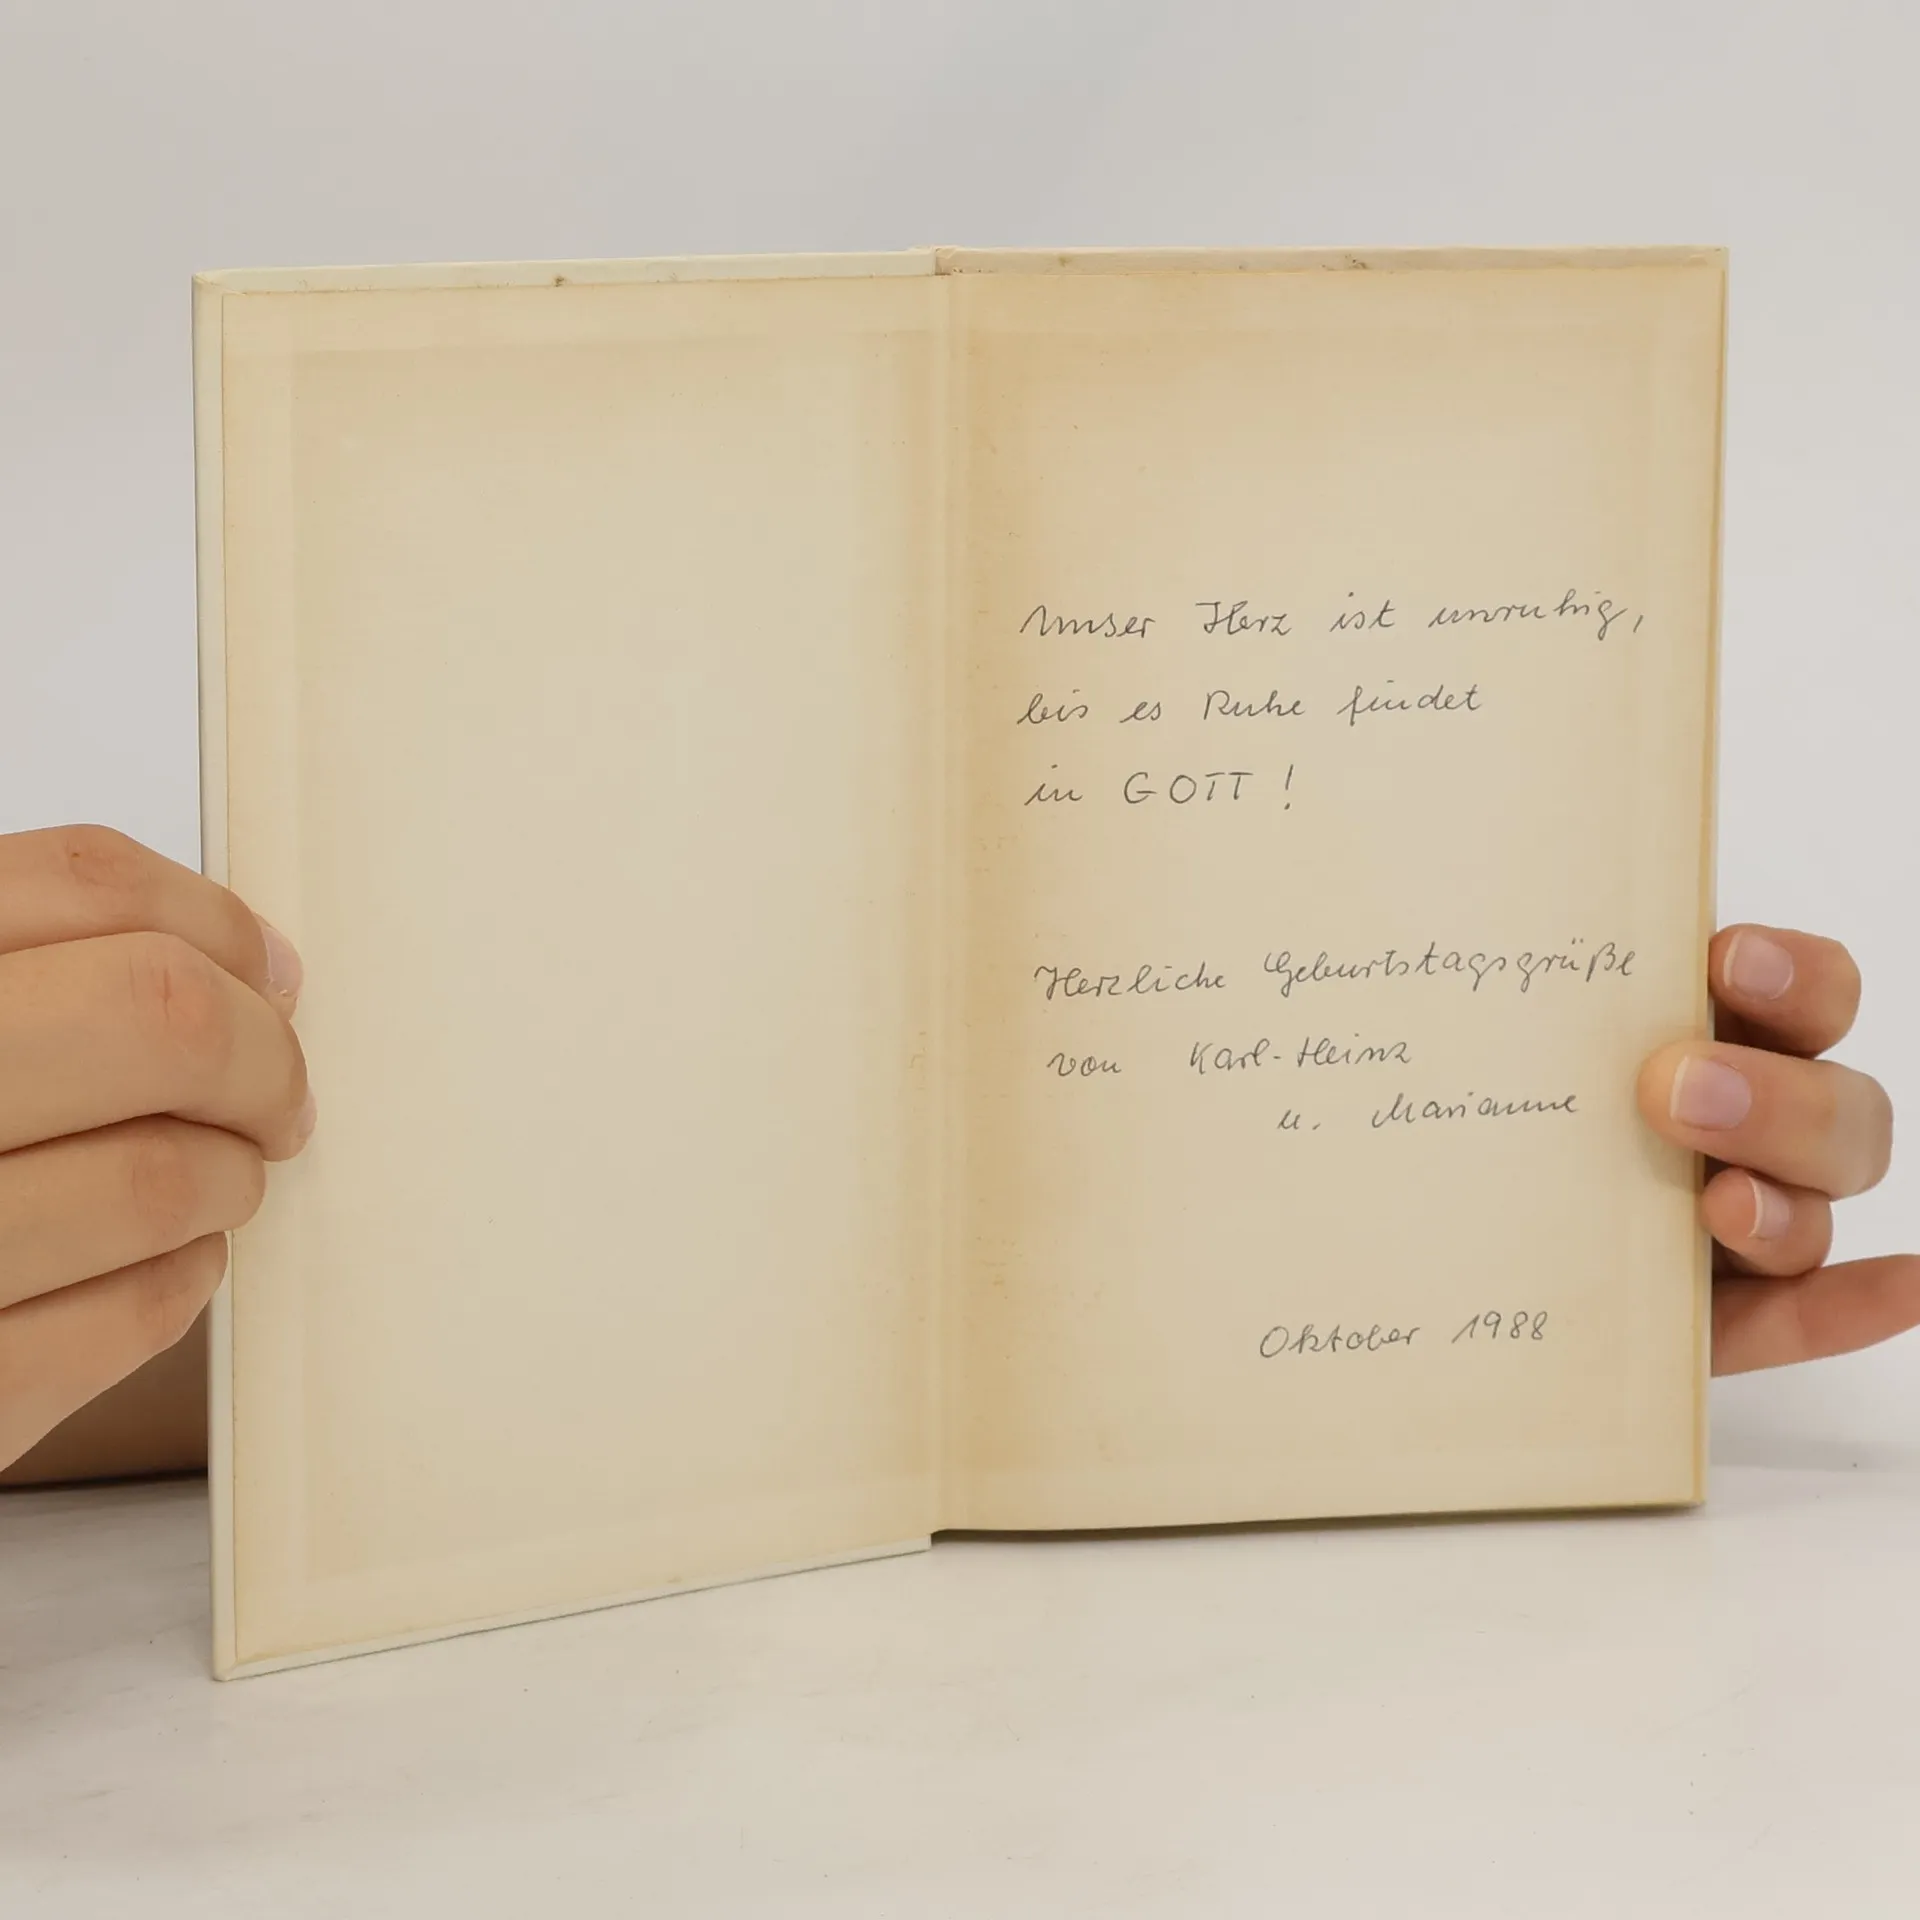 Unser Herz ist unruhig,
bis es Ruhe findet
in GOTT !
Herzliche Geburtstagsgrüße
von Karl-Heinz
u. Marianne
Oktober 1988